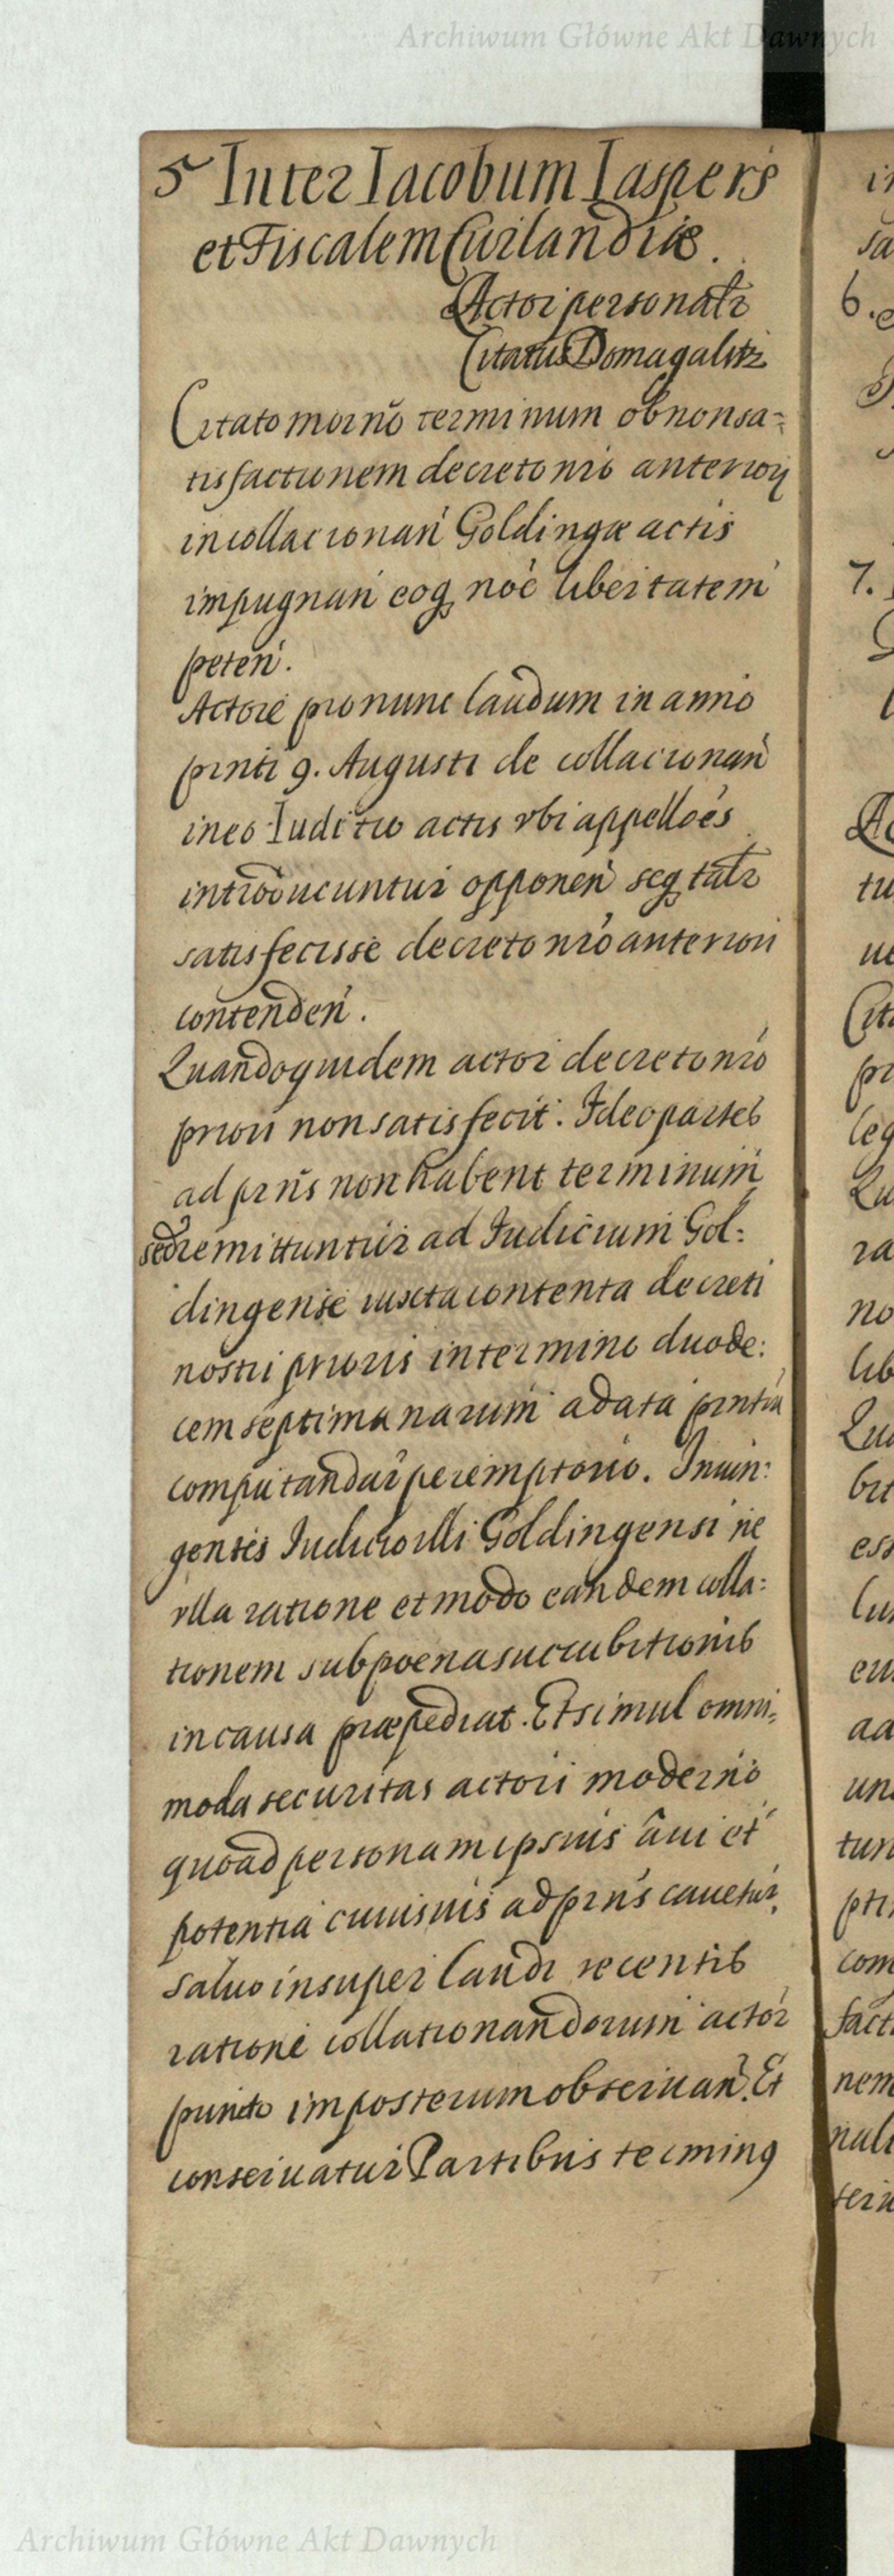 Archiwum Główne Akt Dawnych
5 Inter Iacobum Iaspers
et Fiscalem Curlandiæ.
Actor personalr
Citatus Domagalitz
Citato morno terminum ob non sa=
tisfactionem decreto nro anteriori
in collacionan Goldingæ actis
impugnan eoq noe libertatem
peten.
Actore pro nunc laudum in anno
prnti 9. Augusti de collacionan
in eo Iuditio actis vbi appelloes
introducuntur opponen seq talr
satisfecisse decreto nro anteriori
contenden.
Quandoquidem actor decreto nro
priori non satisfecit. Ideo partes
ad prns non habent terminum
sed remittuntur ad Iudicium Gol:
dingense iuxta contenta decreti
nostri prioris in termino duode:
cem septimanarum a data prntiu
computandar peremptorio. Iniun:
gentes Iudicio illi Goldingensi ne
vlla ratione et modo eandem colla:
tionem sub poena succubitionis
in causa præpediat. Et simul omni=
moda securitas actori moderno
quoad personam ipsius âui et
potentia cuiusuis ad prns cauetur.
Saluo insuper laudi recentis
ratione collationandorum actor
puncto imposterum obseruan. Et
conseruatur Partibus terming
Archiwum Główne Akt Dawnych